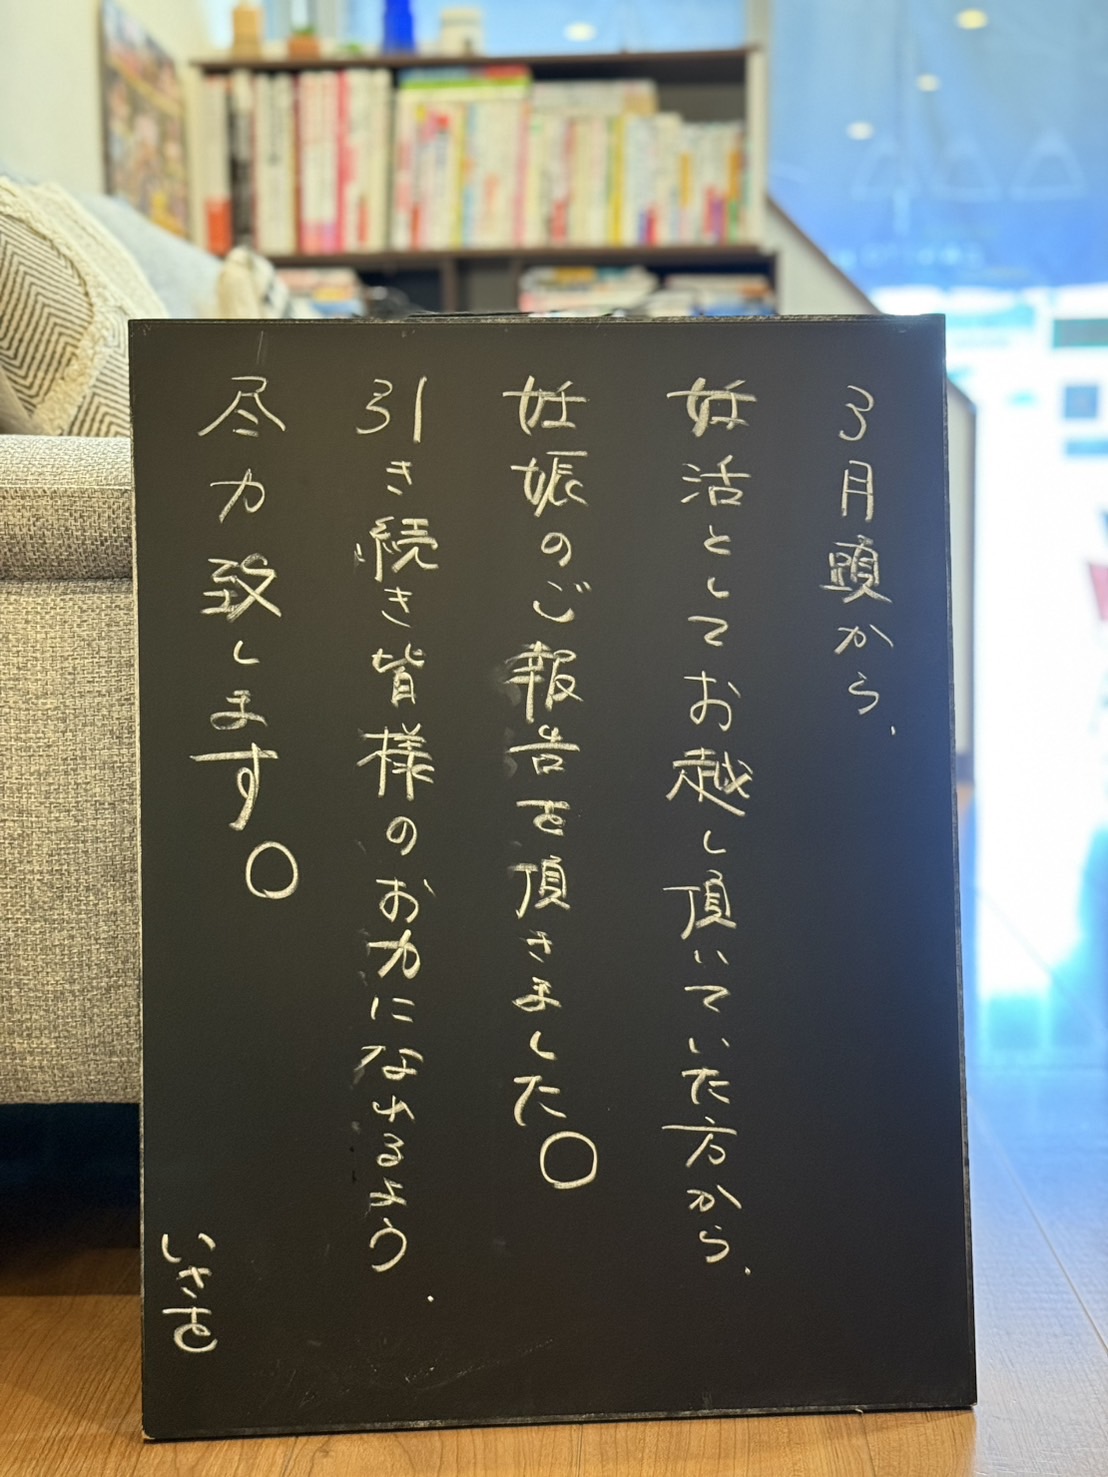 3月頭から、
妊活としてお越し頂いていた方から、
妊娠のご報告を頂きました。
引き続き皆様のお力になれるよう、
尽力致します。
いさを